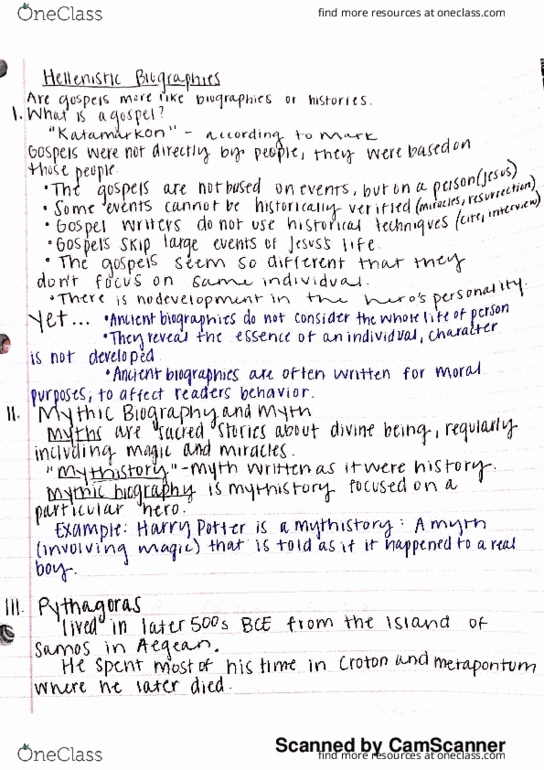 OneClass
find more resources at oneclass.com
Hellenistic Biographies
Are gospels more like biographies or histories.
I. What is a gospel?
"Katamarkon" - according to Mark
Gospels were not directly by people, they were based on
those people
• The gospels are not based on events, but on a person (Jesus)
• Some events cannot be historically verified (miracles, resurrection)
• Gospel writers do not use historical techniques (cite, interview)
• Gospels skip large events of Jesus's life.
• The gospels seem so different that they
don't focus on same individual.
• There is no development in the hero's personality.
Yet... • Ancient biographies do not consider the whole life of person
• They reveal the essence of an individual, character
is not developed
• Ancient biographies are often written for moral
purposes, to affect readers behavior.
II. Mythic Biography and Myth
Myths are sacred stories about divine being, regularly
including magic and miracles.
"Mythistory" - myth written as it were history.
Mythic biography is mythistory focused on a
particular hero.
Example: Harry Potter is a mythistory: A myth
(involving magic) that is told as if it happened to a real
boy.
III. Pythagoras
lived in later 500s BCE from the island of
Samos in Aegean.
He spent most of his time in Croton and metapontum
where he later died.
Scanned by CamScanner
OneClass
find more resources at oneclass.com